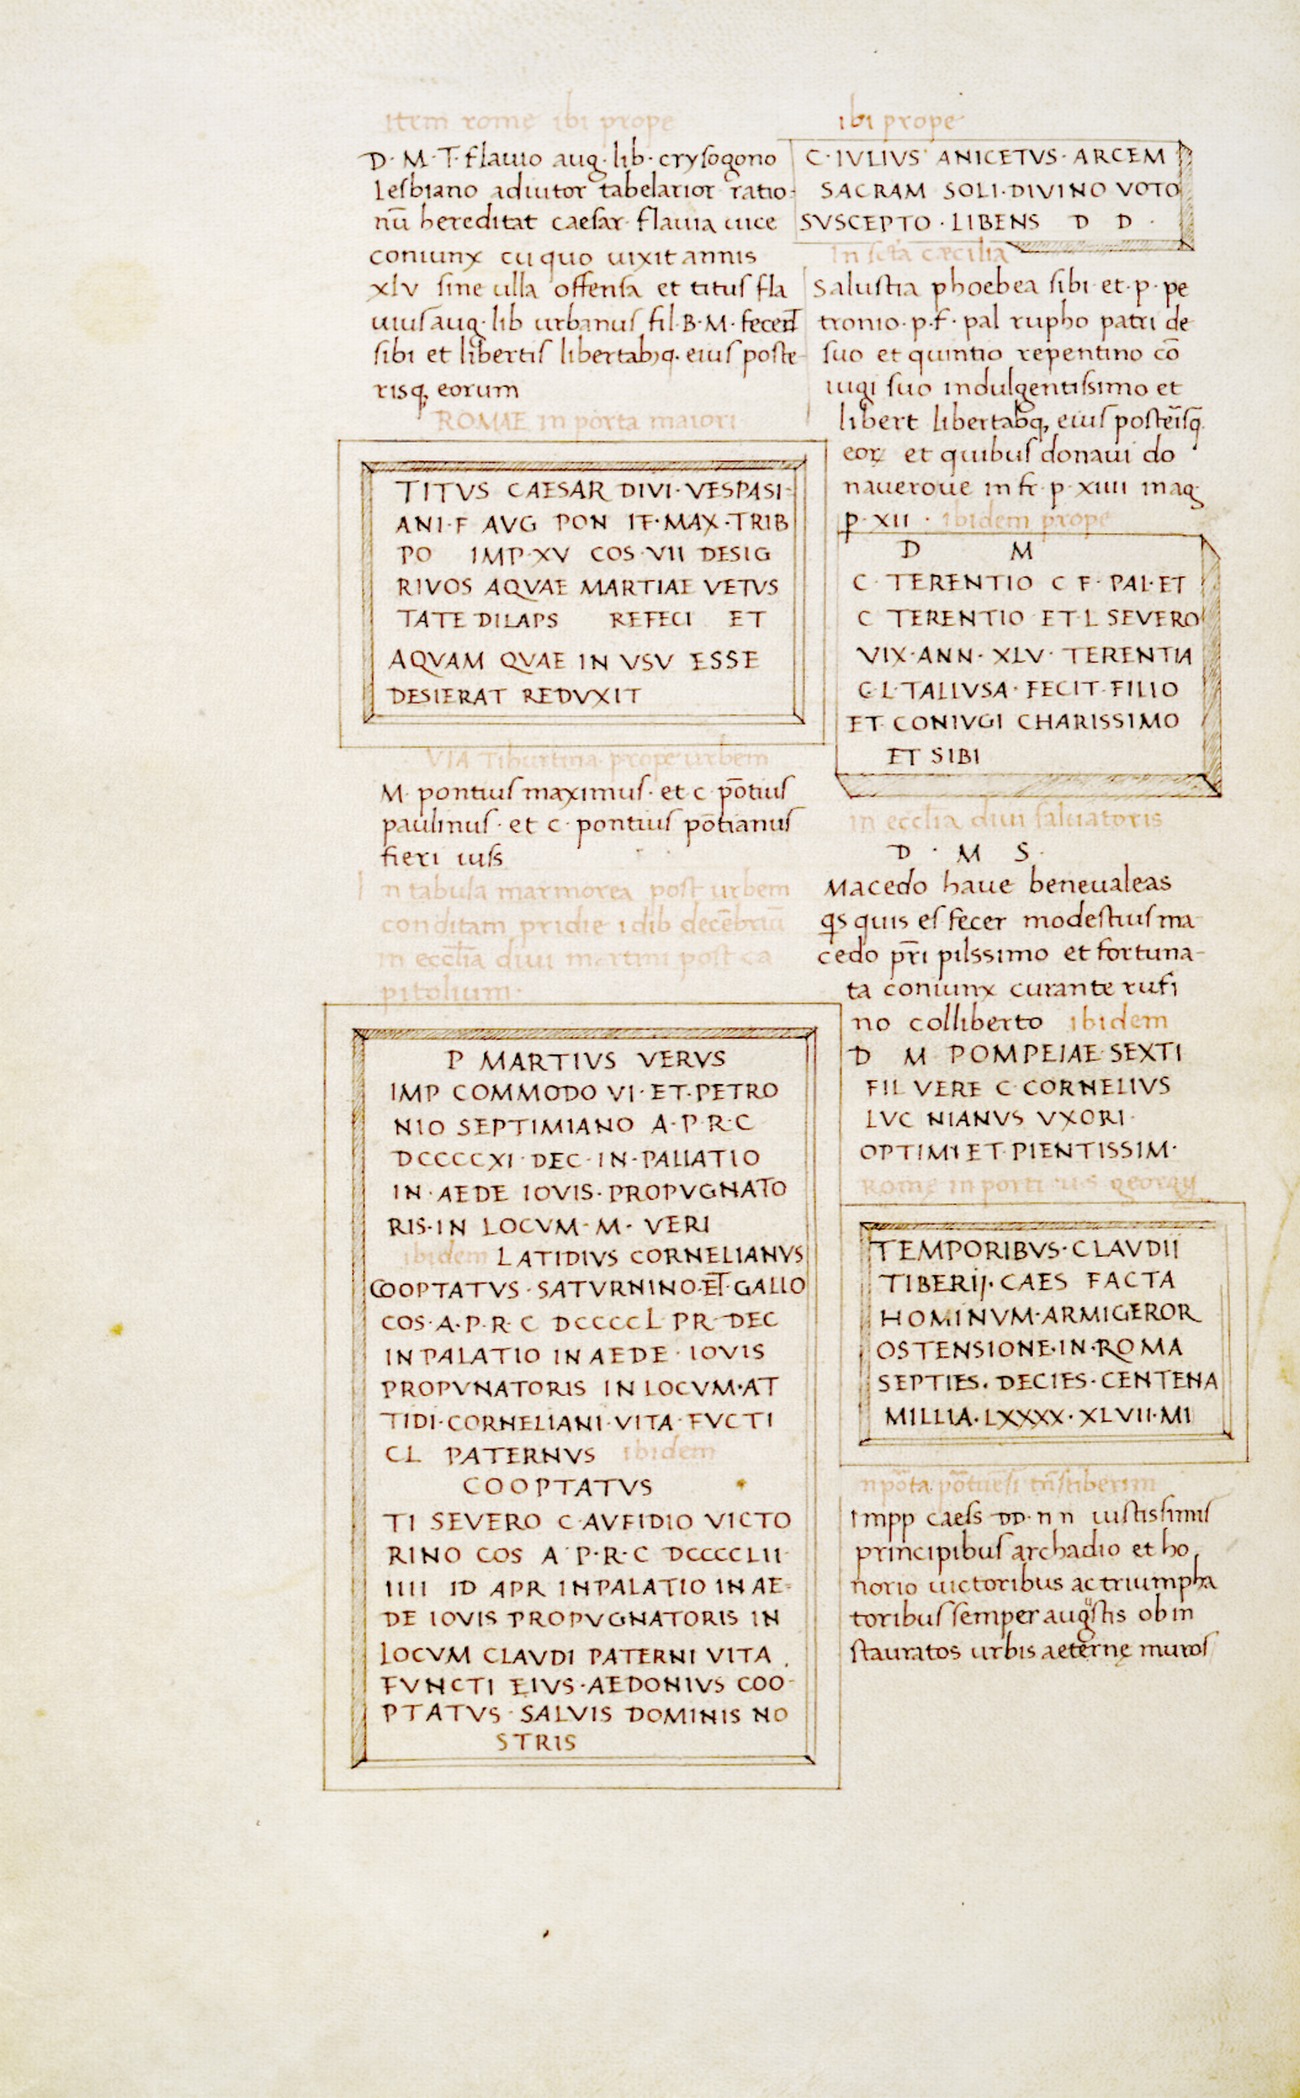 item rome ibi prope
D· M· T· flauio aug· lib· crysogono
lesbiano adiutor tabelarior ratio-
nū hereditat caesar· flauia uice
coniunx cu quo uixit annis
xlv sine ulla offensa et titus fla
uius aug· lib urbanus fil· B· M· fecert̄
sibi et libertis libertabq· eius poste-
risq, eorum
ROMAE in porta maiori
TITVS CAESAR DIVI· VESPASI-
ANI· F AVG PON TF· MAX· TRIB
PO IMP· XV COS· VII DESIG
RIVOS AQVAE MARTIAE VETVS
TATE DILAPS REFECI ET
AQVAM QVAE IN VSV ESSE
DESIERAT REDVXIT
VIA Tiburtina· prope urbem
M· pontius maximus· et c· pōtius
paulinus· et c· pontius pōtianus
fieri iuss
In tabula marmorea post urbem
conditam pridie idib decēbriū
in ecclīa diui martini post ca
pitolium·
P MARTIVS VERVS
IMP COMMODO VI· ET· PETRO
NIO SEPTIMIANO A· P· R· C
DCCCCXI· DEC· IN· PALLATIO
IN· AEDE IOVIS· PROPVGNATO
RIS· IN LOCVM· M· VERI
ibidem LATIDIVS CORNELIANVS
COOPTATVS· SATVRNINO· ET· GALLO
COS· A· P· R· C DCCCCL PR· DEC
IN PALATIO IN AEDE· IOVIS
PROPVNATORIS IN LOCVM· AT
TIDI· CORNELIANI· VITA· FVCTI
CL PATERNVS ibidem
COOPTATVS
TI SEVERO C· AVFIDIO VICTO
RINO COS A· P· R· C DCCCCLII·
IIII ID APR IN PALATIO IN AE-
DE IOVIS PROPVGNATORIS IN
LOCVM CLAVDI PATERNI VITA
FVNCTI EIVS· AEDONIVS COO-
PTATVS· SALVIS DOMINIS NO
STRIS
ibi prope
C· IVLIVS ANICETVS· ARCEM
SACRAM SOLI· DIVINO VOTO
SVSCEPTO· LIBENS D D·
In scta cæcilia
Salustia phoebea sibi et· p· pe
tronio· p· f· pal rupho patri de
suo et quintio repentino cō
iugi suo indulgentissimo et
libert libertabq, eius posteisq
eor et quibus donaui do
nauerove in fr· p· xiiii in ag·
p· XII· ibidem prope
D M
C· TERENTIO C F· PAL· ET
C TERENTIO ET· L SEVERO
VIX· ANN· XLV· TERENTIA
C· L· TALLVSA· FECIT· FILIO
ET· CONIVGI CHARISSIMO
ET SIBI
in ecclīa diui saluatoris
D· M S·
Macedo haue beneualeas
qs quis es fecer modestius ma-
cedo pri piissimo et fortuna-
ta coniunx curante rufi
no colliberto ibidem
D M POMPEIAE· SEXTI
FIL VERE C· CORNELIVS
LVC NIANVS VXORI·
OPTIMI ET· PIENTISSIM·
Rome in porti
TEMPORIBVS· CLAVDII
TIBERIJ· CAES FACTA
HOMINVM· ARMIGEROR
OSTENSIONE· IN· ROMA
SEPTIES· DECIES· CENTENA
MILLIA· LXXXX· XLVII· MI
Impp caess DD· n n iustissimis
principibus archadio et ho
norio uictoribus ac triumpha
toribus semper augstis ob in
stauratos urbis aeternę muros